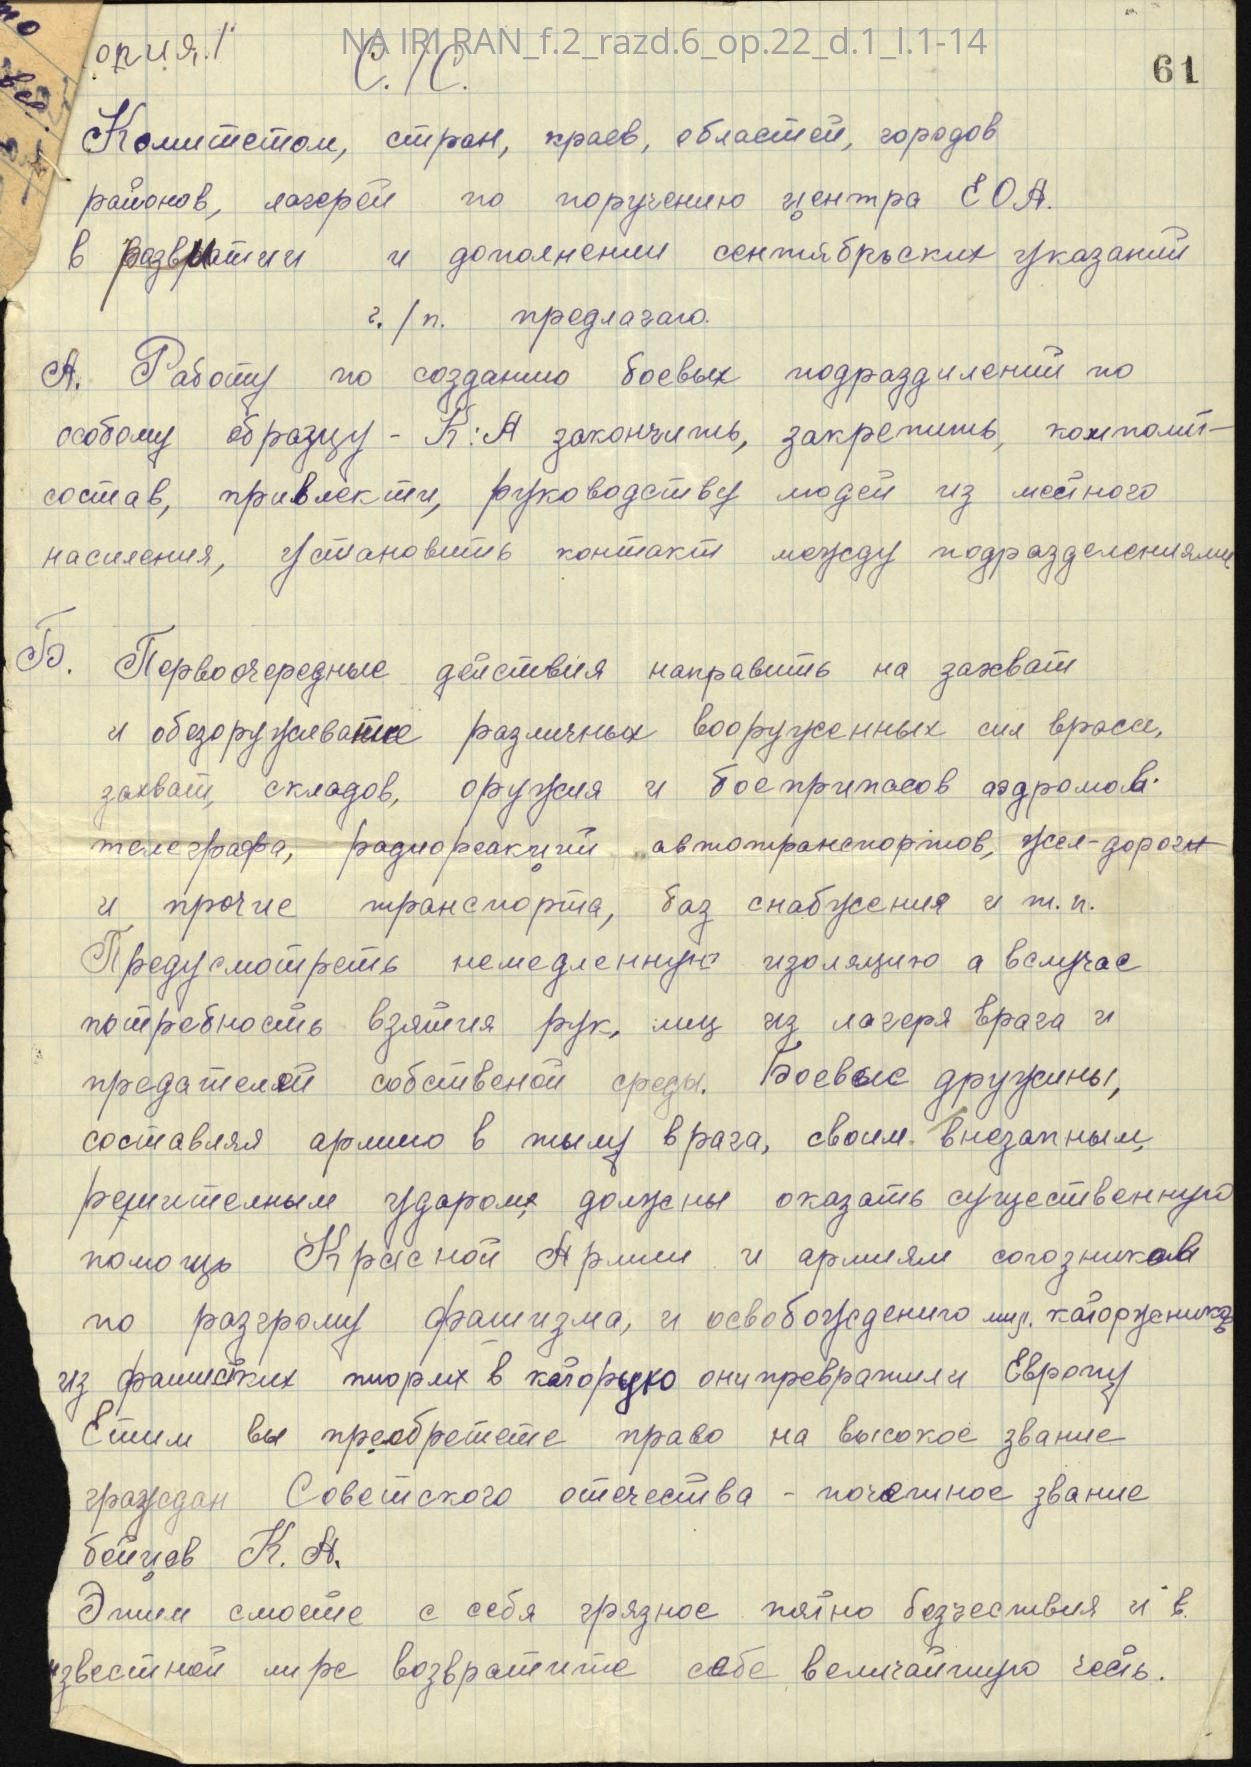 NA IRI RAN_f.2_razd.6_op.22_d.1_l.1-14
опия./
С./С.
61
Комитетом, стран, краев, областей, городов
районов, лагерей по поручению центра ЕОА.
в развитии и дополнении сентябрьских указаний
г./п. предлагаю.
А. Работу по созданию боевых подразделений по
особому образцу - К:А закончить, закрепить, компомит-
состав, привлекти, руководству людей из местного
насиления, установить контакт между подразделениями
Б. Первоочередные действия направить на захват
и обезоруживание различных вооруженных сил врага,
захват, складов, оружия и боеприпасов аэдромов.
телеграфа, радиореакций автотранспортов, жел-дороги
и прочие транспорта, баз снабжения и т.п.
Предусмотреть немедленную изоляцию а вслучае
потребность взятия рук. лиц из лагеря врага и
предателей собственой среды. Боевые дружины,
составляя армию в тылу врага, своим внезапным,
решителным ударом, должны оказать существенную
помощь Красной Армии и армиям союзников
по разгрому фашизма, и освобождению мир. каторжников
из фашистких тюрмх в каторую они превратили Европу
Етим вы преобретете право на высокое звание
граждан Советского отечества - почетное звание
бойцов К. А.
Этим смоете с себя грязное пятно безчествия и в.
известной мире возвратите себе величайшую честь.